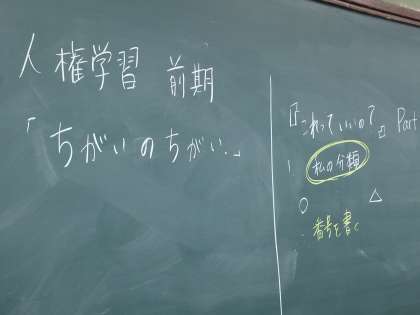 人権学習 前期
「ちがいのちがい」
『これっていいの?』 Part
私の分類
○ △
番号を書く